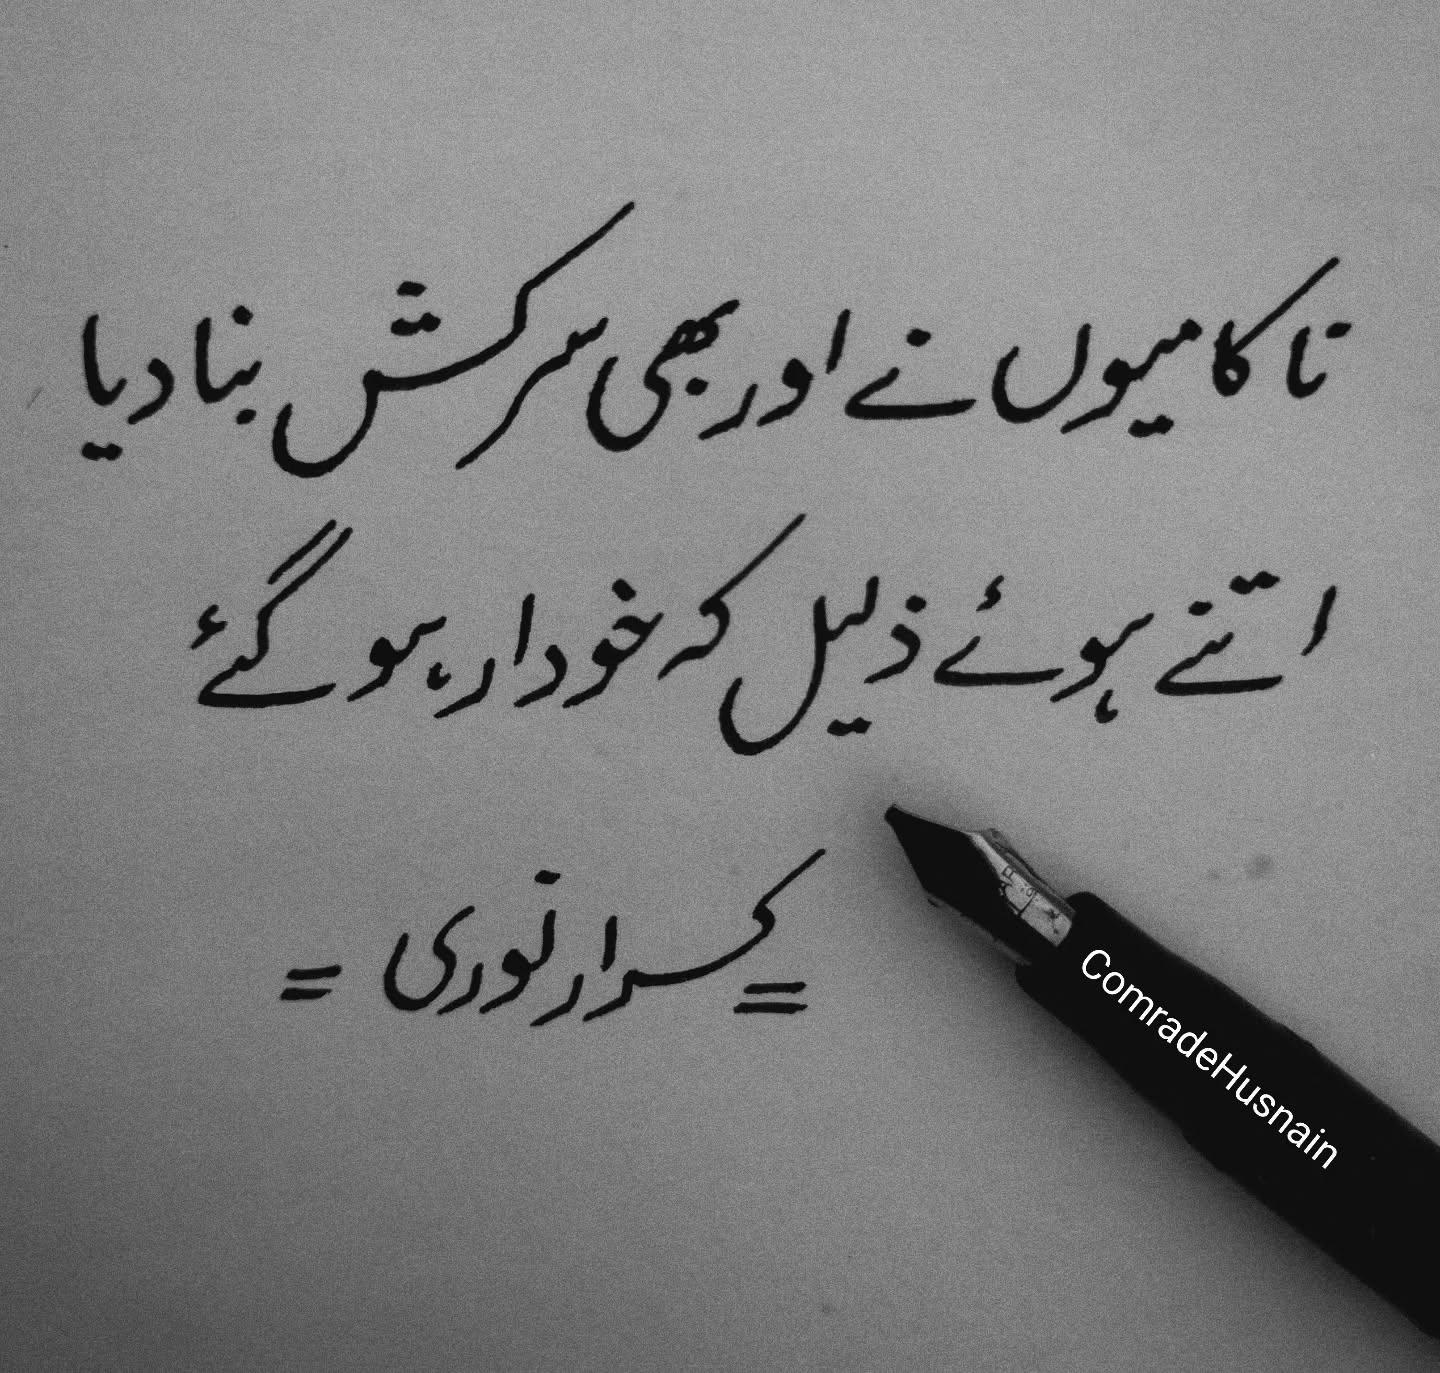 ناکامیوں نے اور بھی سرکش بنا دیا
اتنے ہوئے ذلیل کہ خودار ہو گئے
= کرار نوری =
ComradeHusnain